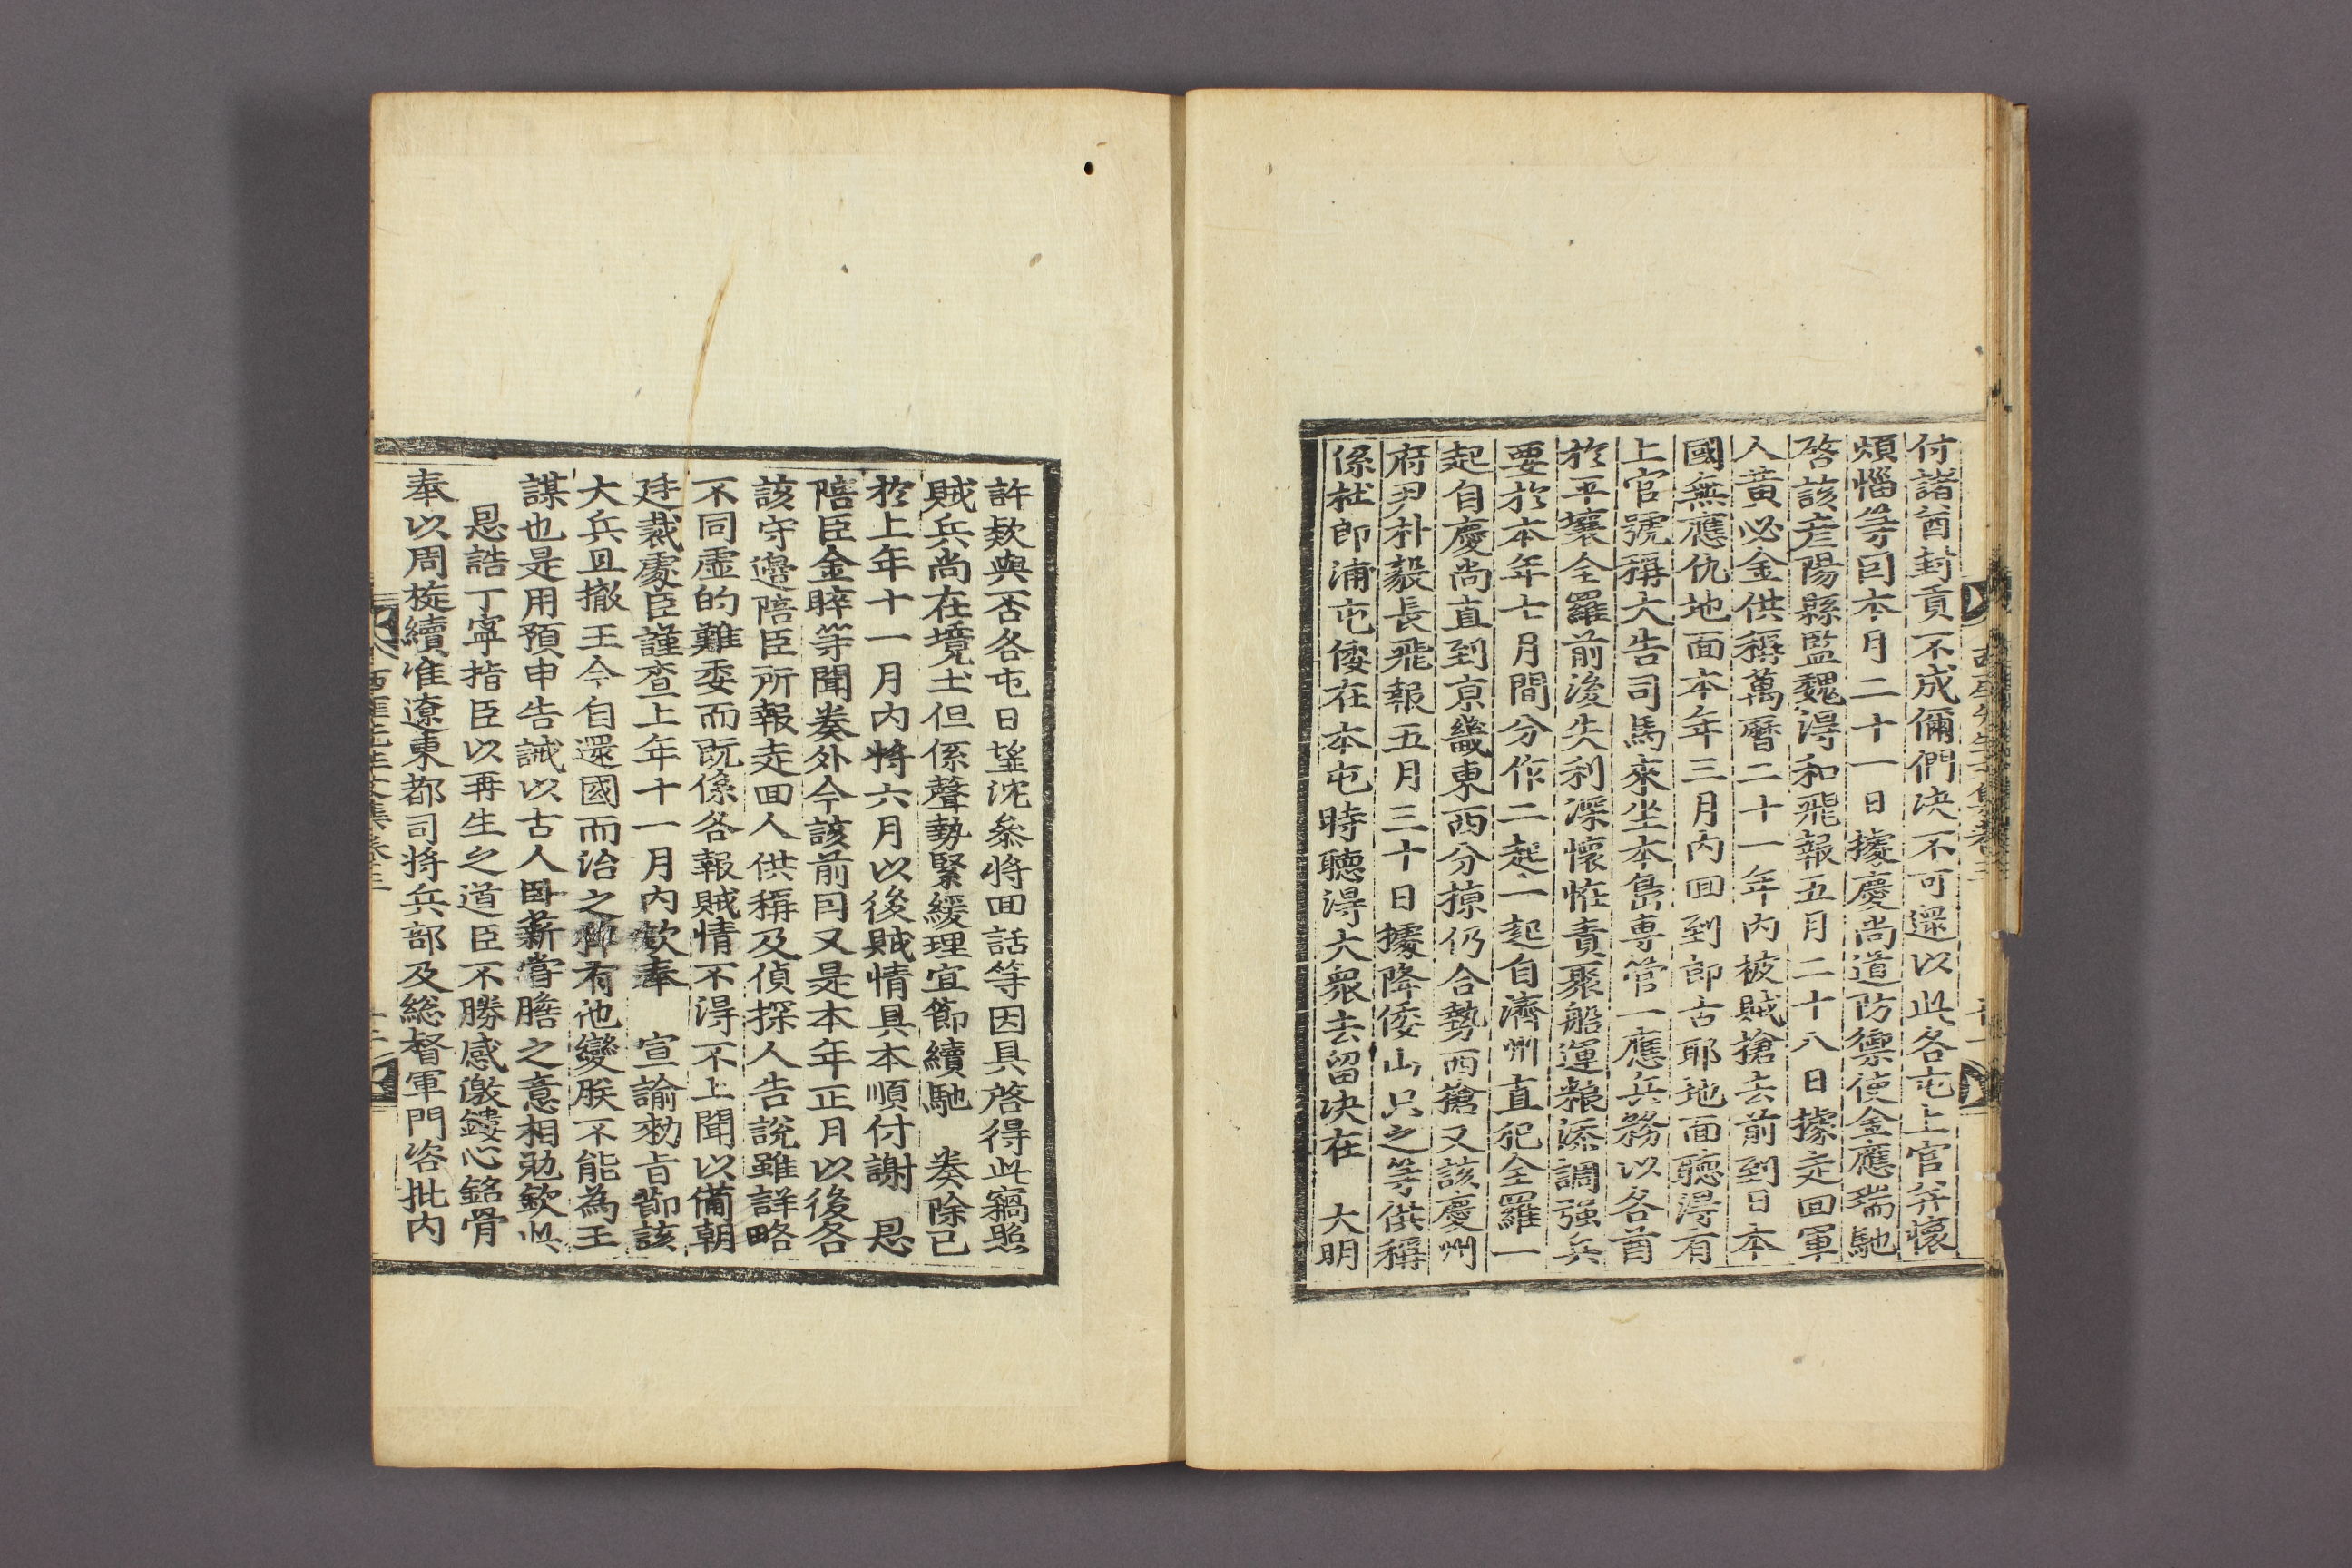 付諸酋封貢不成儞們决不可還以此各屯上官并懷
煩惱等因本月二十一日據慶尙道防禦使金應瑞馳
啓該彦陽縣監魏淂和飛報五月二十八日據走回軍
人黃必金供稱萬曆二十一年內被賊搶去前到日本
國無應仇地面本年三月內回到郎古耶地面聽淂有
上官號稱大告司馬來坐本島專管一應兵務以各酋
於平壤全羅前後失利深懷恠責聚船運粮添調强兵
要於本年七月間分作二起一起自濟州直犯全羅一
起自慶尙直到京畿東西分掠仍合勢西搶又該慶州
府尹朴毅長飛報五月三十日據降倭山只之等供稱
係林郎浦屯倭在本屯時聽淂大衆去留决在　大明
許欵與否各屯日望沈叅將回話等因具啓得此竊照
賊兵尙在境土但係聲勢緊緩理宜節續馳　奏除已
於上年十一月內將六月以後賊情具本順付謝　恩
陪臣金睟等聞奏外今該前因又是本年正月以後各
該守邊陪臣所報走回人供稱及偵探人告說雖詳略
不同虛的難委而旣係各報賊情不淂不上聞以備朝
廷裁處臣謹查上年十一月內欽奉　宣諭勑旨節該
大兵且撤王今自還國而治之卽有他變朕不能爲王
謀也是用預申告誡以古人卧薪嘗膽之意相勉欽此
恩誥丁寧指臣以再生之道臣不勝感激鏤心銘骨
奉以周旋續准遼東都司將兵部及総督軍門咨批內